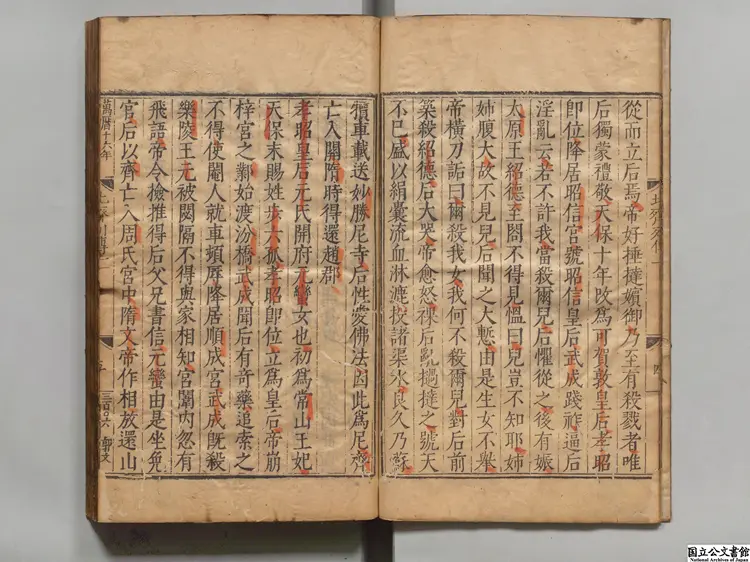 從而立后焉帝好捶撻嬪御乃至有殺戮者唯
后獨蒙禮敬天保十年改爲可賀敦皇后孝昭
即位降居昭信宮號昭信皇后武成踐祚逼后
淫亂云若不許我當殺爾兒后懼從之後有娠
太原王紹德至閤不得見慍曰兒豈不知耶姊
姊腹大故不見兒后聞之大慙由是生女不舉
帝橫刀詬曰爾殺我女我何不殺爾兒對后前
築殺紹德后大哭帝愈怒裸后亂撾撻之號天
不已盛以絹囊流血淋漉投諸渠水良久乃蘇
犢車載送妙勝尼寺后性愛佛法因此爲尼齊
亡入關隋時得還趙郡
孝昭皇后元氏開府元蠻女也初爲常山王妃
天保末賜姓步六孤孝昭即位立爲皇后帝崩
梓宮之鄴始渡汾橋武成聞后有奇藥追索之
不得使閹人就車頓辱降居順成宮武成既殺
樂陵王元被閟隔不得與家相知宮闈內忽有
飛語帝令檢推得后父兄書信元蠻由是坐免
官后以齊亡入周氏宮中隋文帝作相放還山
萬曆十六年
国立公文書館
National Archives of Japan